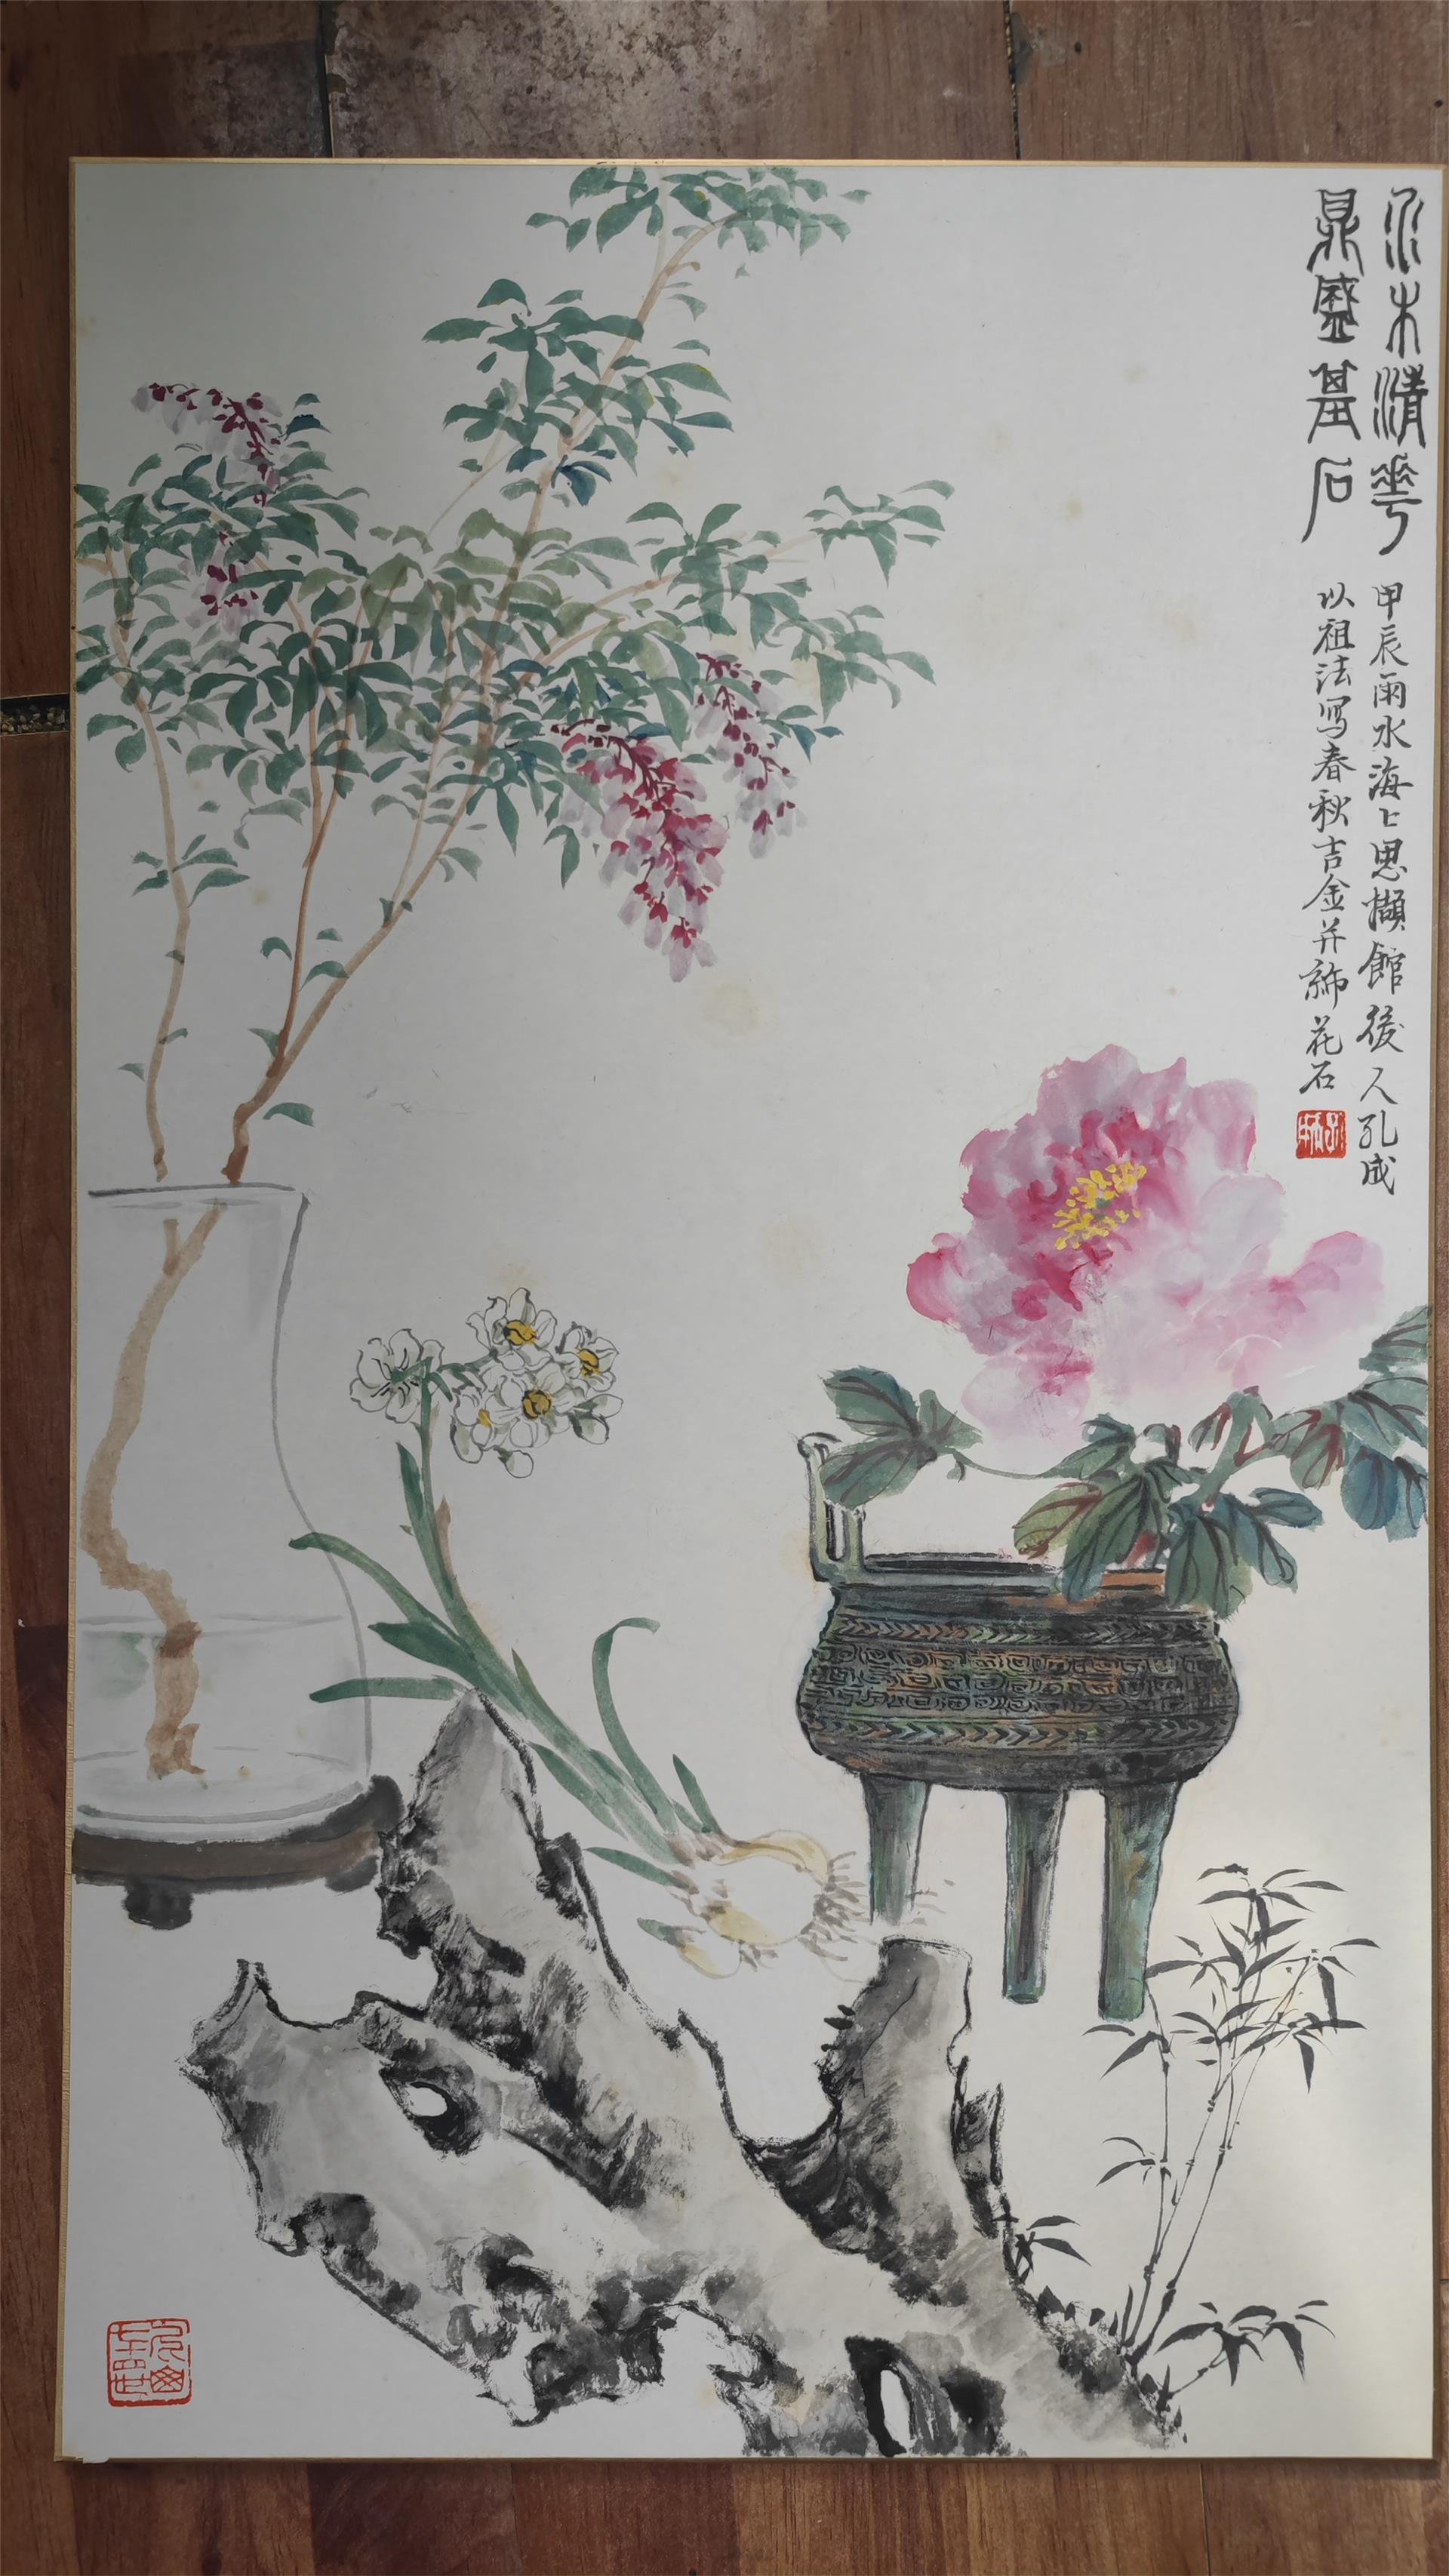 水木清華
鼎盛基石
甲辰雨水海上思擷館後人孔成
以祖法写春秋吉金并飾花石